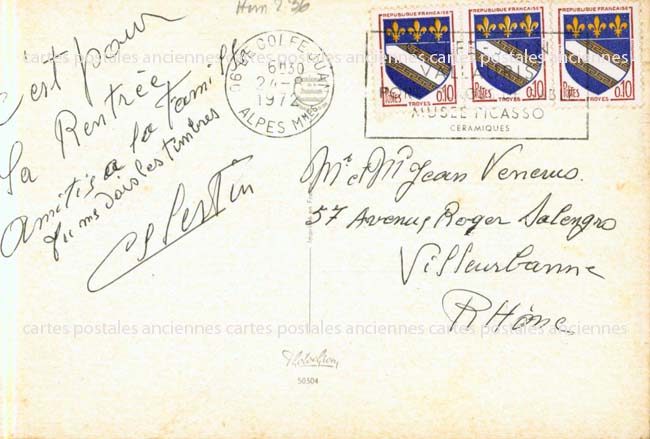 Hum 2.36
C'est pour
la Rentrée
Amitis a la famille
Tu me dois les timbres
Celestin
06 LE GOLFE JUAN
6H30
24-8
1972
ALPES MMES
REPUBLIQUE FRANÇAISE
POSTES
0,10
TROYES
REPUBLIQUE FRANÇAISE
POSTES
0,10
TROYES
REPUBLIQUE FRANÇAISE
POSTES
0,10
TROYES
GOLFE JUAN
VALLAURIS
MUSÉE PICASSO
CERAMIQUES
Mr et Me Jean Venerus.
57 Avenue Roger Salengro
Villeurbanne
Rhône
Photochrom
50504
cartes postales anciennes cartes postales anciennes cartes postales anciennes
cartes postales anciennes cartes postales anciennes cartes postales anciennes